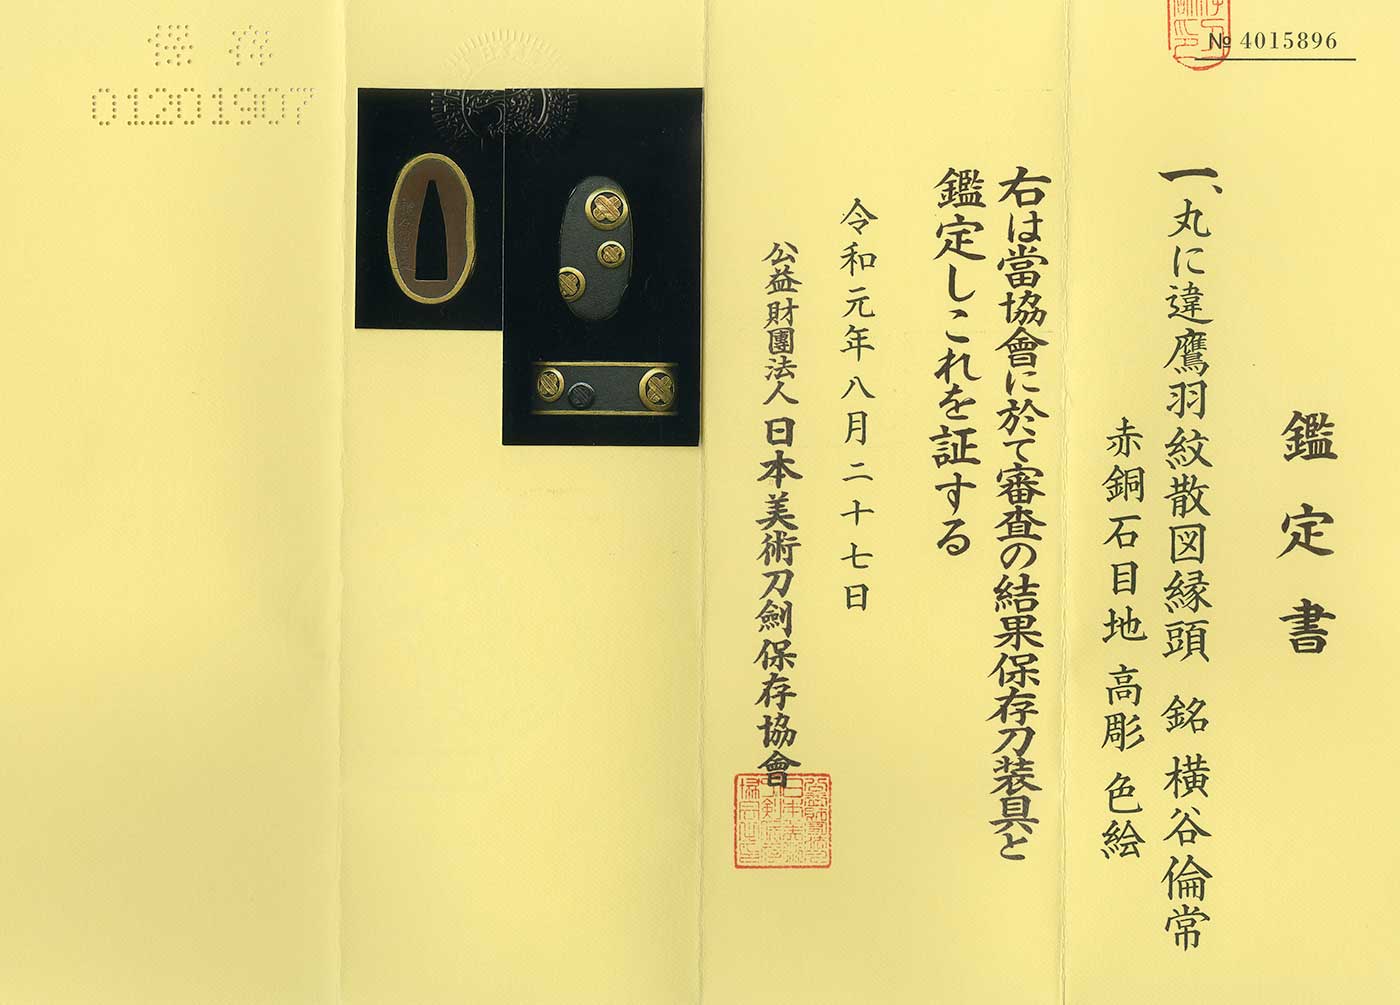 № 4015896
鑑定書
一、丸に違鷹羽紋散図縁頭 銘 横谷倫常
赤銅石目地 高彫 色絵
右は當協會に於て審査の結果保存刀装具と
鑑定しこれを証する
令和元年八月二十七日
公益財團法人 日本美術刀劍保存協會
保存
01201907